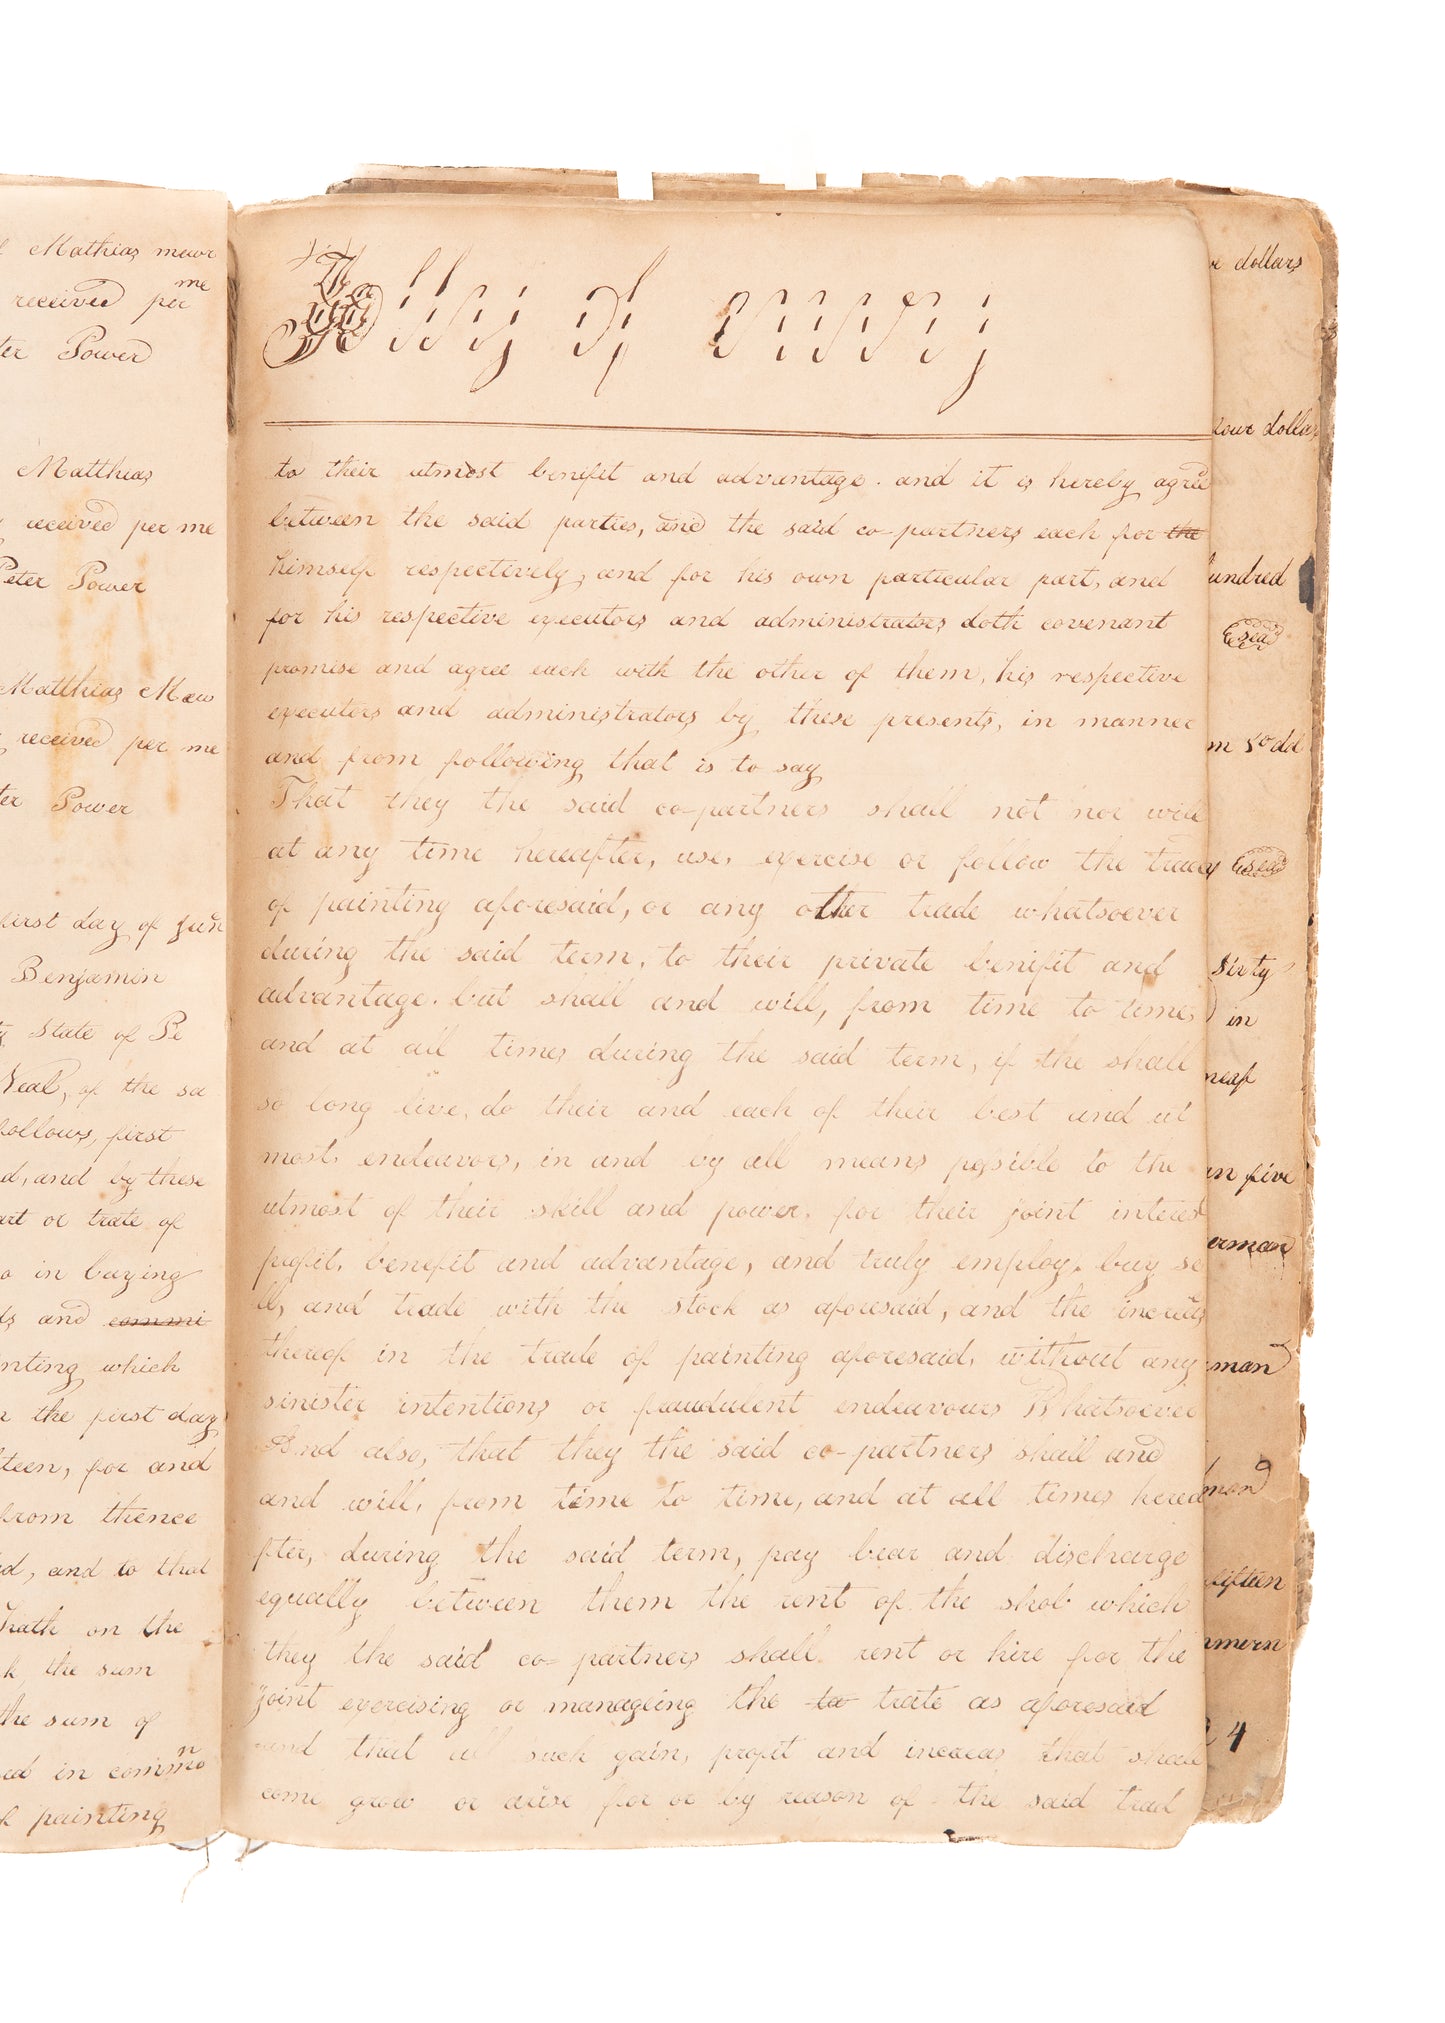 Mathias mowr
received per me
ter Power
Matthias
received per me
Peter Power
Matthias Mew
received per me
ter Power
first day of Jun
Benjamin
State of Pe
Neal, of the sa
follows, first
d, and by these
art or trate of
o in buying
ds and commi
inting which
n the first day
teen, for and
from thence
d, and to that
Trath on the
k, the sum
the sum of
ed in common
k painting
to their utmost benifit and advantage. and it is hereby agree
between the said parties, and the said co-partners each for the
himself respectively, and for his own particular part, and
for his respective executors and administrators doth covenant
promise and agree each with the other of them, his respective
executers and administrators by these presents, in manner
and from following that is to say
That they the said co-partners shall not nor will
at any time hereafter, use, exercise or follow the tracy
of painting aforesaid, or any other trade whatsoever
during the said term, to their private benifit and
advantage. but shall and will, from time to times
and at all times during the said term, if the shall
so long live, do their and each of their best and ut
most, endeavors, in and by all means possible to the
utmost of their skill and power, for their joint interest
profit, benefit and advantage, and truly employ, buy se
ll, and trade with the stock as aforesaid, and the increas
thereof in the trade of painting aforesaid, without any
sinister intentions or fraudulent endeavours Whatsoever
And also, that they the said co-partners shall and
and will, from time to time, and at all times herea
fter, during the said term, pay bear and discharge
equally between them the rent of the shob which
they the said co-partners shall rent or hire for the
joint exercising or manageing the to trate as aforesaid
and that all such gain, profit and increas that shall
come grow or arise for or by reason of the said trad
dollars
four dolla
hundred
Seal
m 80 dol
Seal
Sixty
in
an five
erman
man
man
fifteen
4